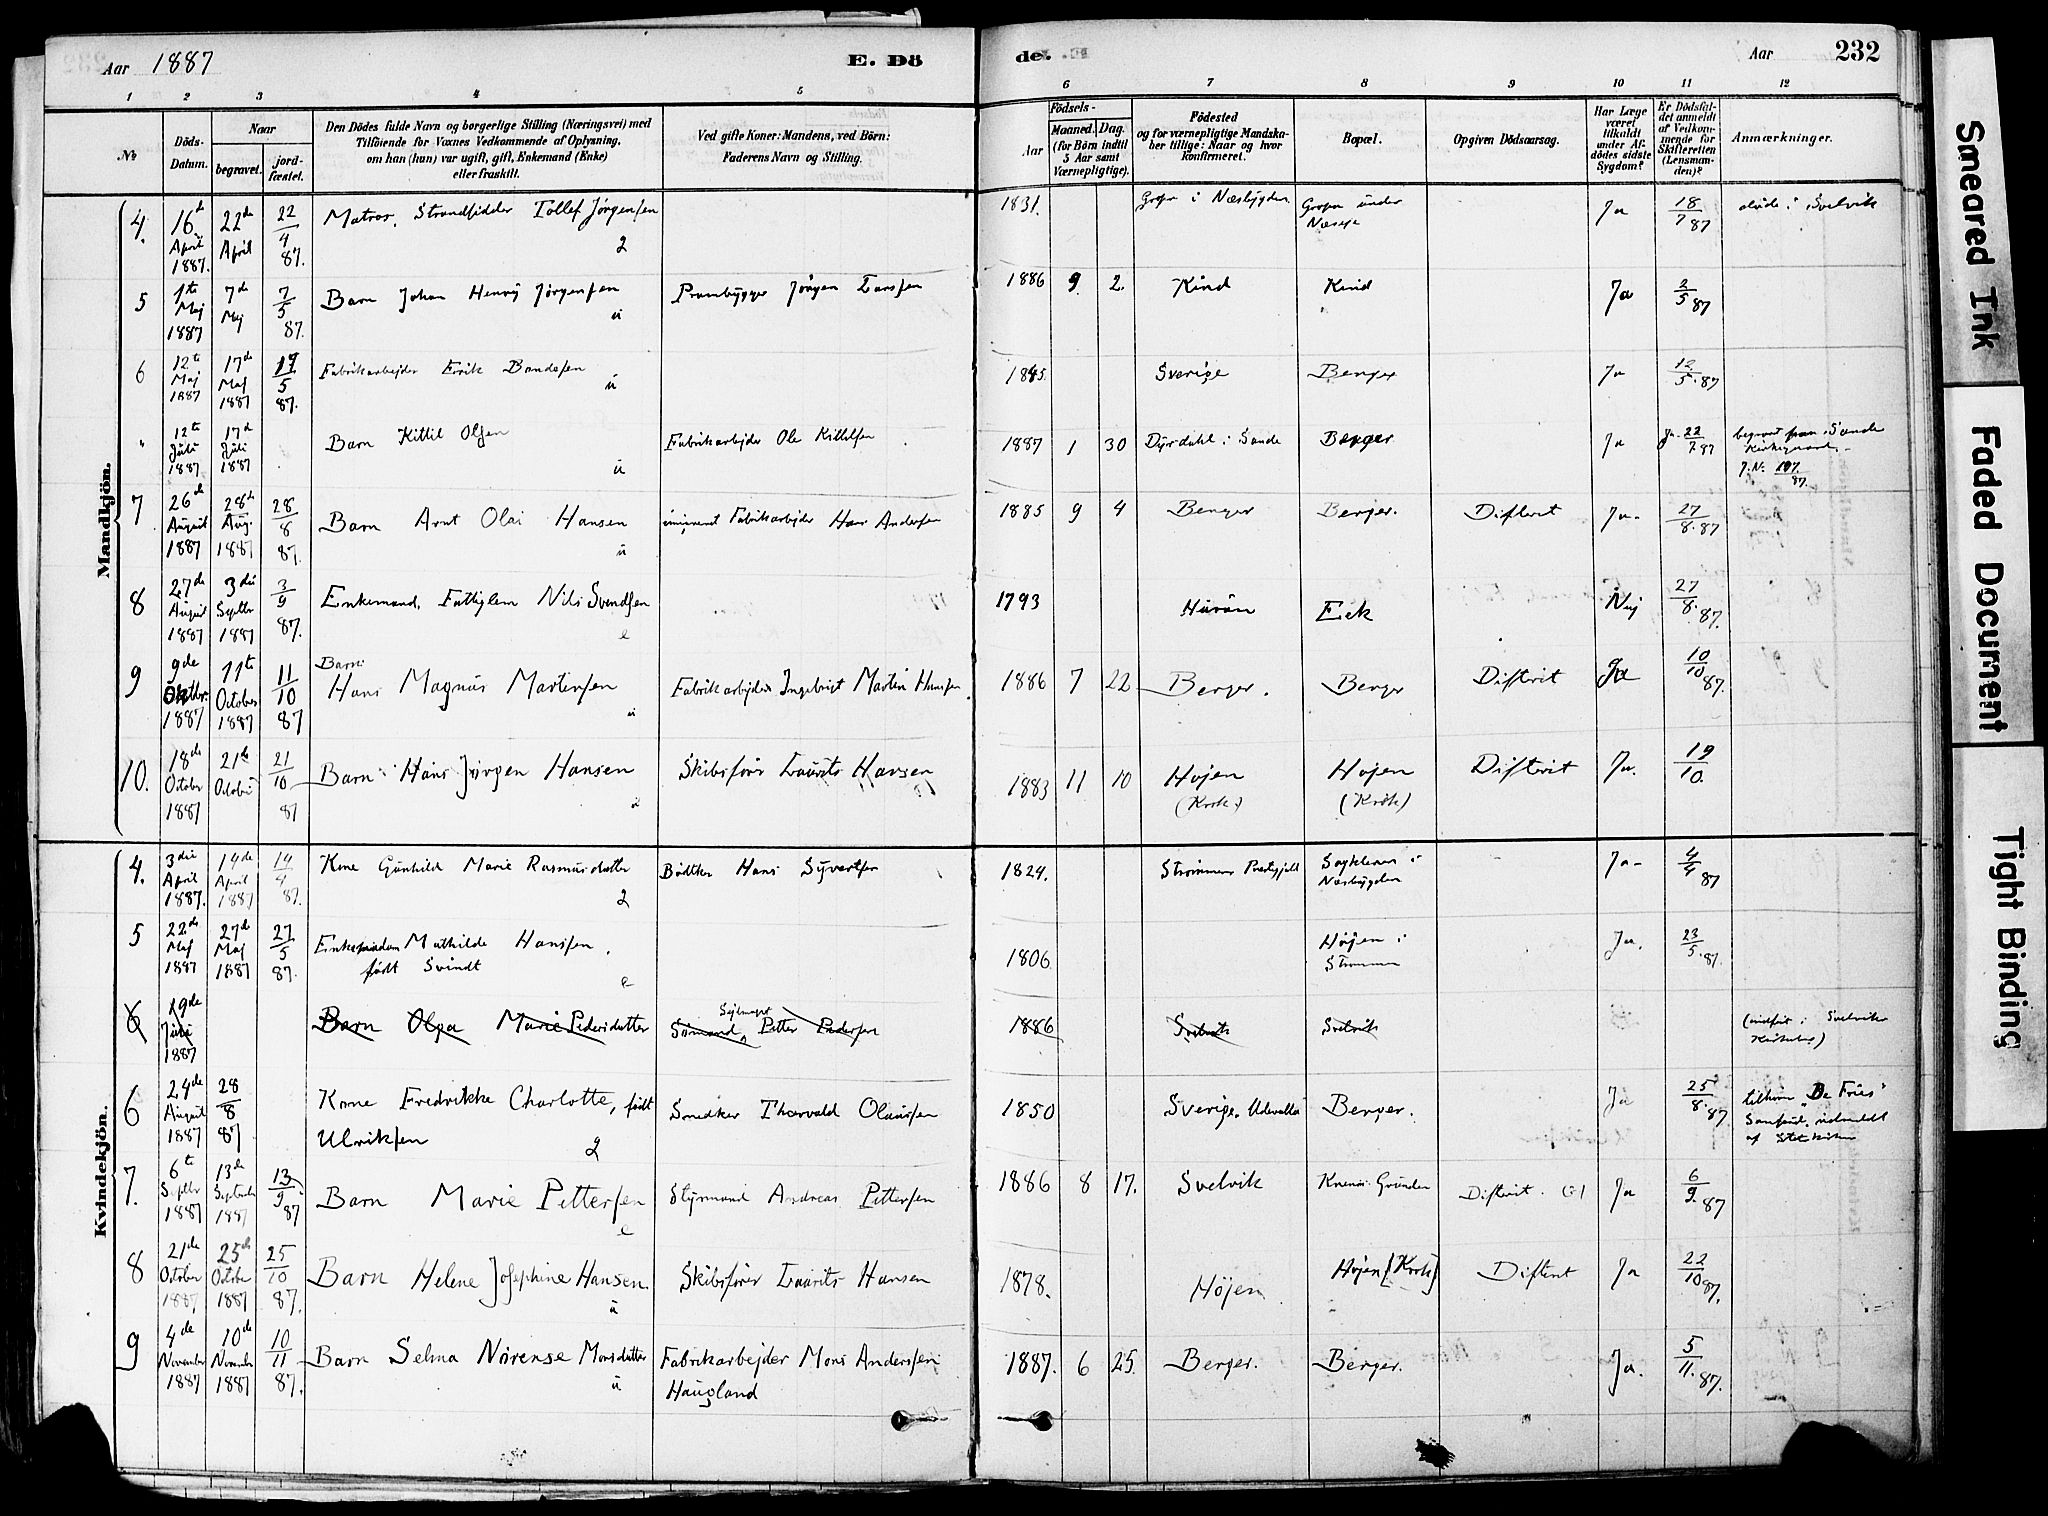 Aar 1887
E. Dö
de.
Aar
232
1 2 3 4 5 6 7 8 9 10 11 12
No
Döds-
Datum.
Naar
begravet.
jord-
fæstet.
Den Dödes fulde Navn og borgerlige Stilling (Næringsvei) med
Tilföiende for Voxnes Vedkommende af Oplysning,
om han (hun) var ugift, gift, Enkemand (Enke)
eller fraskilt.
Ved gifte Koner: Mandens, ved Börn:
Faderens Navn og Stilling.
Födsels-
Aar
Maaned. Dag.
(for Börn indtil
5 Aar samt
Værnepligtige).
Födested
og for værnepligtige Mandska-
ber tillige: Naar og hvor
konfirmeret.
Bopæl.
Opgiven Dödsaarsag.
Har Læge
været
tilkaldt
under Af-
dödes sidste
Sygdom?
Er Dödsfal-
det anmeldt
af Vedkom-
mende for
Skifteretten
(Lensman-
den)?
Anmærkninger.
Mandkjön.
4. 16de April 1887. 22de April 22/4 87. Matros, Strandsidder Tollef Jørgensen 1831. i Næsbygden under Ja 18/7 87 i Svelvik
5 1te Maj 1887 7de Maj 7/5 87. Barn Johan Henrij Jørgensen Prambygger Jörgen Larssen 1886 9 2. Kind Kind Ja 2/5 87
6 12te Maj 1887 17de Maj 1887 17/5 87. Fabrikarbejder Erik Bondesen Sverige Berger Ja 12/5 87
" 12te Juli 1887 17de Juli 1887 Barn Kittil Olsen Fabrikarbejder Ole Kittilsen 1887 1 30 Dyrdahl i Sande Berger Ja 22/7 87 begravet paa Sande Kirkegaard
7 26de August 1887 28de Aug. 1887 28/8 87. Barn Arnt Olai Hansen Fabrikarbejder Hans Andersen 1885 9 4 Berger Berger. Difterit Ja 27/8 87
8 27de August 1887 3die Septbr 1887 3/9 87. Enkemand, Fattiglem Nils Svendsen 1793 Hurum Eck Nej 27/8 87.
9 9de Oktbr. 1887 11te October 1887 11/10 87 Barn: Hans Magnus Martinsen Fabrikarbejder Ingebrigt Martin Hansen 1886 7 22 Berger. Berger Difterit Ja 10/10 87.
10. 18de October 1887 21de October 21/10 87 Barn: Hans Jörgen Hansen Skibsförer Laurits Hansen 1883 11 10 Højen (Krok) Højen (Krok) Difterit Ja. 19/10.
Kvindekjön.
4. 3die April 1887. 14de April 1887 14/4 87. Kone Gunhild Marie Rasmusdatter Bödtker Hans Syvertsen 1824. Strømmens Præstegjeld i Næsbygden Ja 4/4 87
5 22de Maj 1887 27de Maj 1887 27/5 87. Enkemadam Mathilde Hansen, født Svindt 1806 Højen i Strømmen Ja. 23/5 87.
6 19de Juli 1887 Barn Olga Marie Pedersdatter Sömand Sejlmager Petter Pedersen 1886 Svelvik Svelvik (indført i Svelviks Kirkebog)
6 24de August 1887 28/8 87 Kone Fredrikke Charlotte, født Ulriksen Snedker Thorvald Olaussen 1850 Sverige. Udevalla Berger. Ja 25/8 87 tilhører "De Fries" Samfund, udmeldt af Statskirken
7. 6te Septbr 1887 13de September 1887 13/9 87 Barn Marie Pettersen Styrmand Andreas Pettersen 1886 8 17. Svelvik Grunden Difterit. Ja 6/9 87
8 21de October 1887 25de October 1887 25/10 87. Barn Helene Josephine Hansen. Skibsförer Laurits Hansen 1878. Höjen Højen [Krok] Difterit Ja 22/10 87.
9 4de November 1887 10de November 1887 10/11 87. Barn Selma Nörense Monsdatter Fabrikarbejder Mons Anderssen Haugland 1887. 6 25. Berger. Berger. Ja. 5/11. 87.
Smeared Ink
Faded Document
Tight Binding